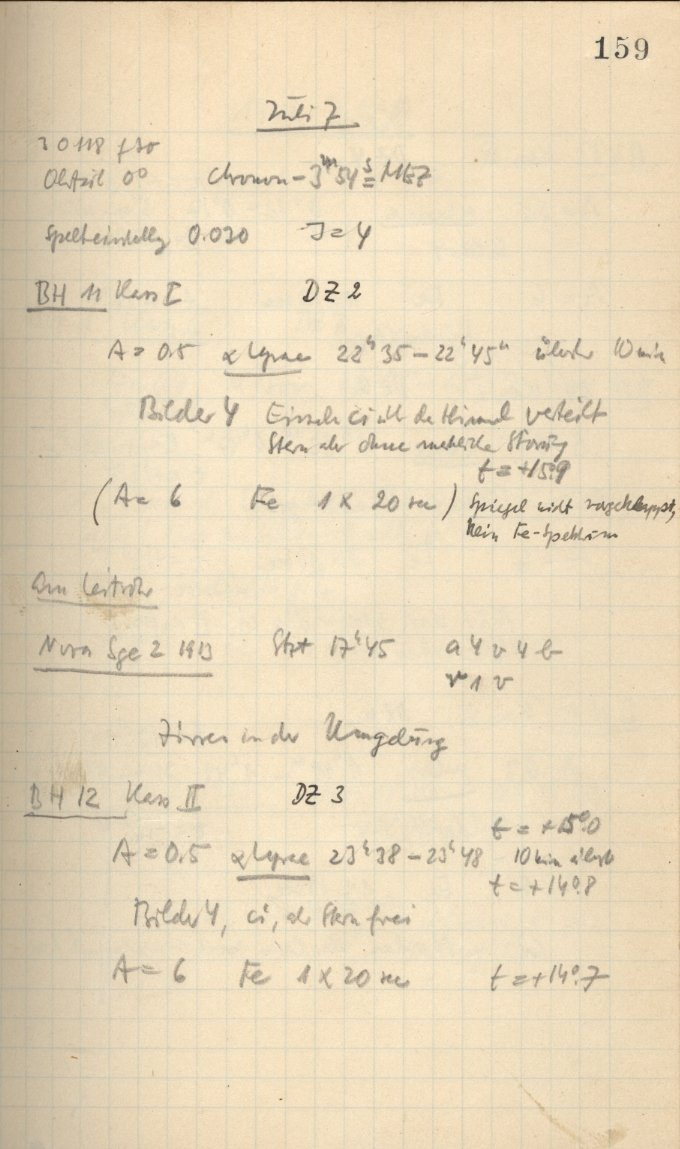 159
Juli 7
30118 f30
0°   Chronom - 3ᵐ 54ˢ = MEZ
0.030   J = 4
BH 11 Klass I   DZ 2
A = 0.5   α Lyrae   22ʰ35 – 22ʰ45ᵐ   10 min
Bilder 4   Einzelne ci üb. den Himmel verteilt
Stern aber ohne merkliche Störung
t = +15°.9
(A = 6   Fe   1 x 20 sec) Spiegel nicht vorgeklappt,
kein Fe-Spektrum
Am Leitrohr
Nova Sge 2 1913   Stzt 17ʰ45   a 4 v 4 b
v 1 v
Zirren in der Umgebung
BH 12 Klass II   DZ 3
t = +15°.0
A = 0.5   α Lyrae   23ʰ38 – 23ʰ48   10 min
t = +14°.8
Bilder 4, ci, ab. Stern frei
A = 6   Fe   1 x 20 sec   t = +14°.7